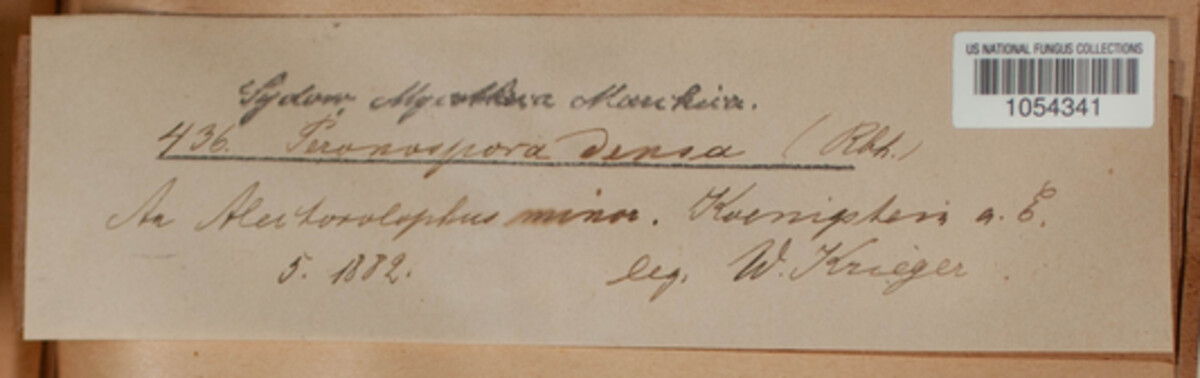 US NATIONAL FUNGUS COLLECTIONS
1054341
Sydow, Mycotheca Marchica.
436. Peronospora densa (Rbh.)
An Alectorolophus minor. Koenigstein a. E.
5. 1882. leg. W. Krieger